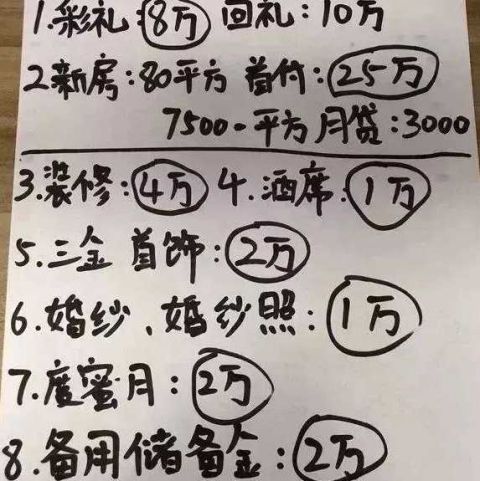 1.彩礼:8万 回礼:10万
2.新房:80平方 首付:25万
7500一平方 月贷:3000
3.装修:4万 4.酒席:1万
5.三金 首饰:2万
6.婚纱、婚纱照:1万
7.度蜜月:2万
8.备用储备金:2万